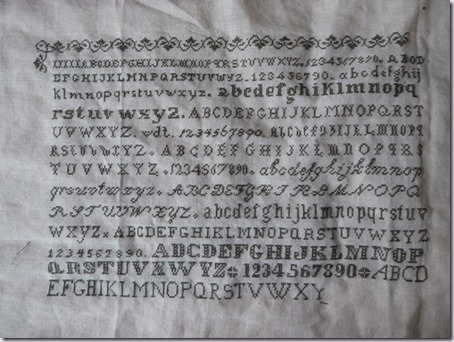 ABCDEFGHIJKLMNOPQRSTUVWXYZ.1234567890. ABCD
EFGHIJKLMNPQRSTUVWYZ.1234567890. abcdefghij
klmnopqrstuvwxyz. abcdefghiklmnopq
rstuvwxyz. ABCDEFGHIJKLMNOPQRST
UVWXYZ. vdt. 1234567890. ABCDEFGHIJKLMNOPQ
RSTUVWXYZ. ABCDEFGHIJKLMNOPQRS
TUVWXYZ. 1234567890. abcdefghijklmnop
qrsuvwxyz. ABCDEFGHIJKLMNOPQ
RSTUVWXYZ. abcdefghijklmnopqrstuv
wxyz. ABCDEFGHIJKLMNOPQRSTUVWXYZ
1234567890. ABCDEFGHIJKLMNOP
QRSTUVXWYZ 1234567890 ABCD
EFGHIKLMNOPQRSTUVWXY